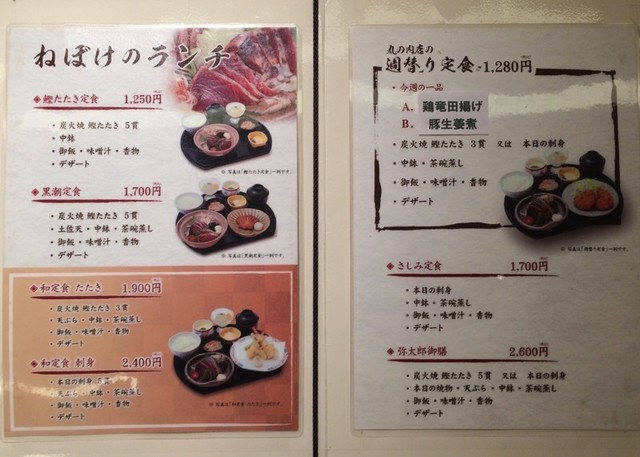 ねぼけのランチ
鰹たたき定食 1,250円
・炭火焼 鰹たたき 5貫
・中鉢
・御飯・味噌汁・香物
・デザート
※ 写真は「鰹たたき定食」一例です。
黒潮定食 1,700円
・炭火焼 鰹たたき 5貫
・土佐天・中鉢・茶碗蒸し
・御飯・味噌汁・香物
・デザート
※ 写真は「黒潮定食」一例です。
和定食 たたき 1,900円
・炭火焼 鰹たたき 3貫
・天ぷら・中鉢・茶碗蒸し
・御飯・味噌汁・香物
・デザート
和定食 刺身 2,400円
・本日の刺身 5貫
・天ぷら・中鉢・茶碗蒸し
・御飯・味噌汁・香物
・デザート
※ 写真は「和定食 たたき」一例です。
丸の内店の
週替り定食 1,280円
・今週の一品
A. 鶏竜田揚げ
B. 豚生姜煮
・炭火焼 鰹たたき 3貫 又は 本日の刺身
・中鉢・茶碗蒸し
・御飯・味噌汁・香物
・デザート
※ 写真は「週替り定食」一例です。
さしみ定食 1,700円
・本日の刺身
・中鉢・茶碗蒸し
・御飯・味噌汁・香物
・デザート
弥太郎御膳 2,600円
・炭火焼 鰹たたき 5貫 又は 本日の刺身
・本日の焼物・天ぷら・中鉢・茶碗蒸し
・御飯・味噌汁・香物
・デザート